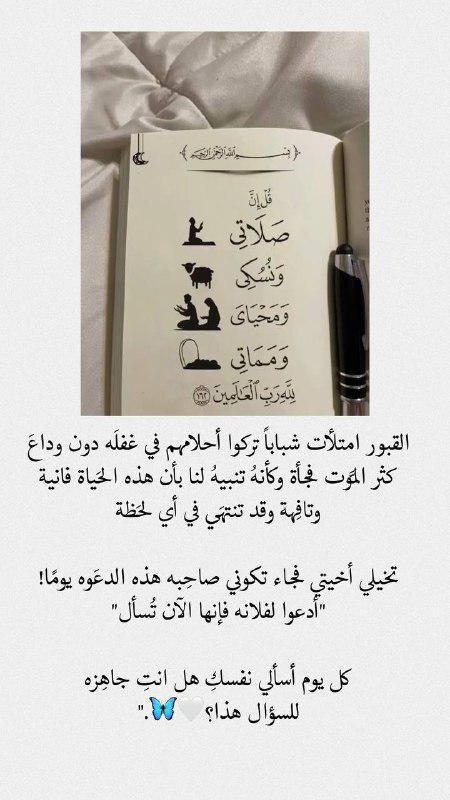 بسم الله الرحمن الرحيم
قُلْ إِنَّ
صَلَاتِي
وَنُسُكِى
وَمَحْيَاىَ
وَمَمَاتِي
لِلَّهِ رَبِّ الْعَالَمِينَ ١٦٢
القبور امتلأت شباباً تركوا أحلامهم في غفلَه دون وداعَ
كثر المَوت فجأة وكأنهُ تنبيهُ لنا بأن هذه الحَياة فانية
وتافِهة وقد تنتهَي في أي لحَظة
تخيلي أخيتي فجاء تكوني صاحِبه هذه الدعَوه يومًا!
"أدعوا لفلانه فإنها الآن تُسأل"
كل يوم أسألي نفسكِ هل انتِ جاهِزه
للسؤال هذا؟🤍🦋."